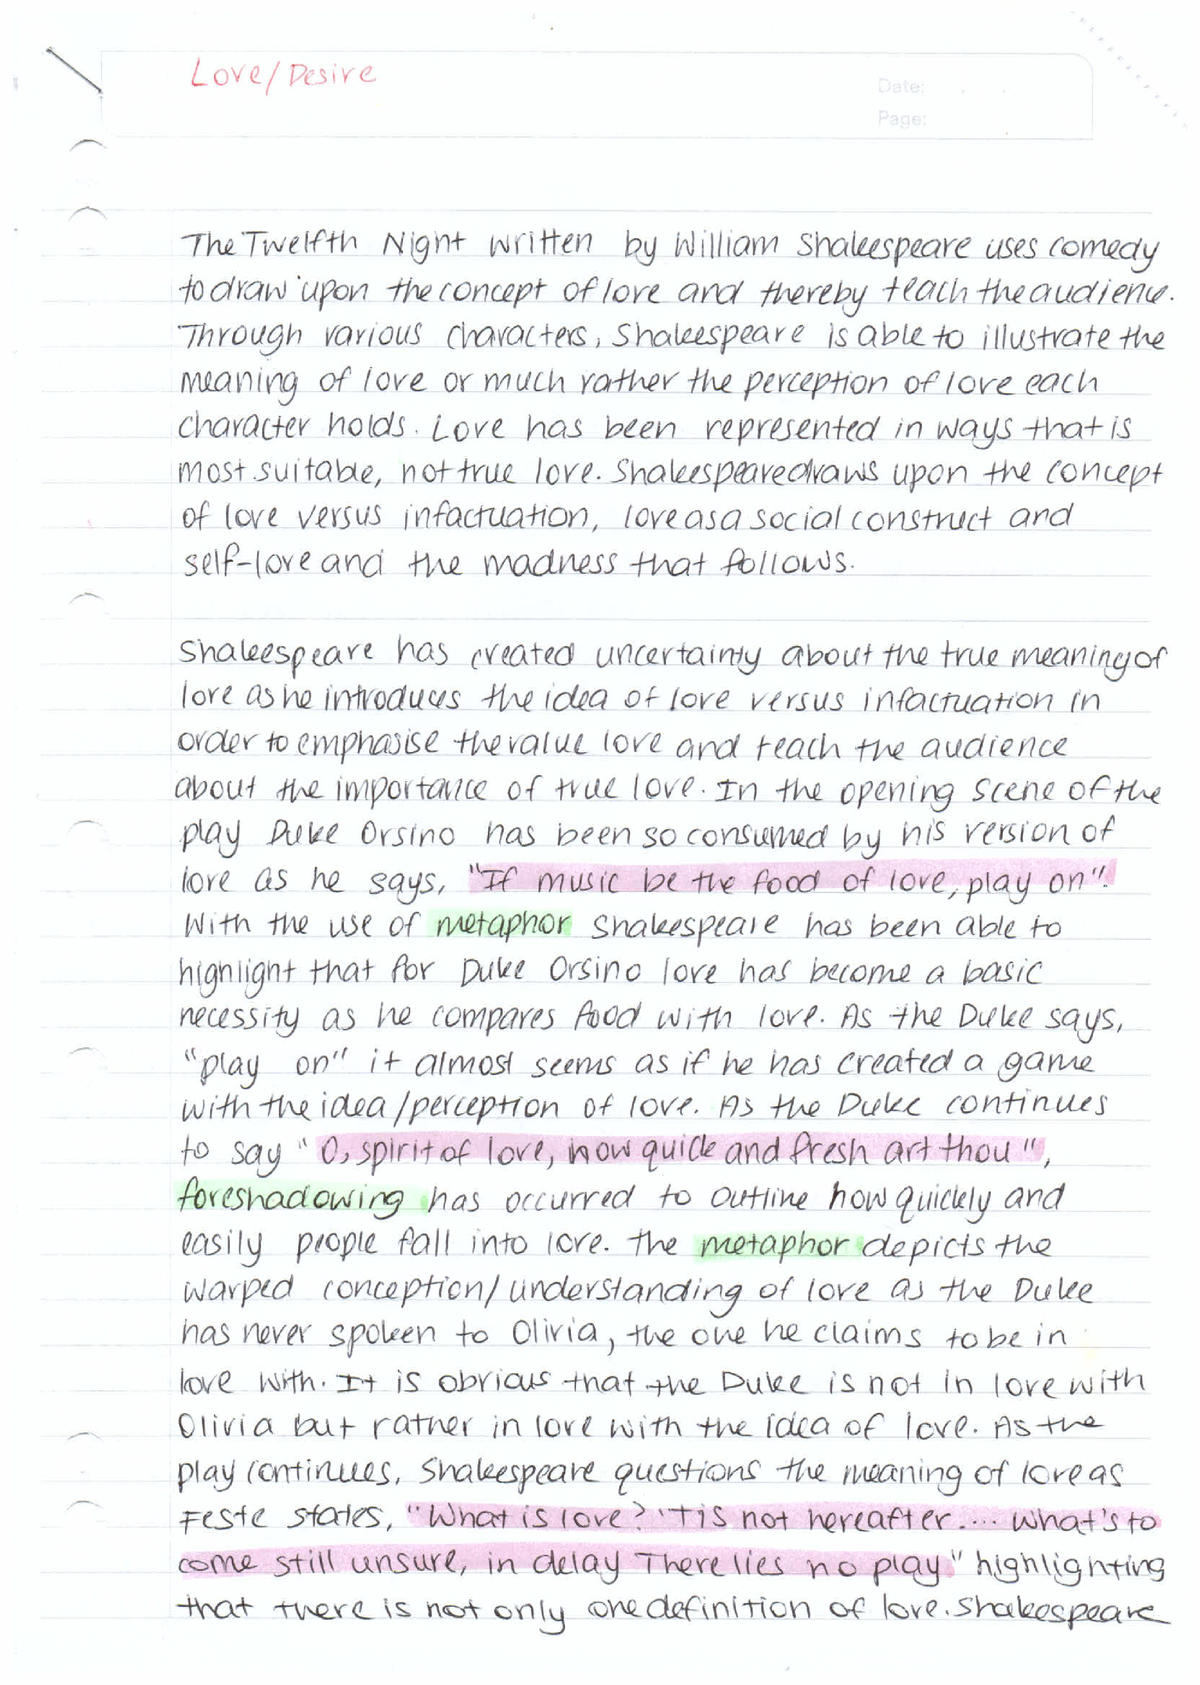 Love/Desire
Date: . .
Page:
The Twelfth Night written by William Shakespeare uses comedy
to draw upon the concept of love and thereby teach the audience.
Through various characters, Shakespeare is able to illustrate the
meaning of love or much rather the perception of love each
character holds. Love has been represented in ways that is
most suitable, not true love. Shakespeare draws upon the concept
of love versus infactuation, love as a social construct and
self-love and the madness that follows.
Shakespeare has created uncertainty about the true meaning of
love as he introduces the idea of love versus infactuation in
order to emphasise the value love and teach the audience
about the importance of true love. In the opening scene of the
play Duke Orsino has been so consumed by his version of
love as he says, "If music be the food of love, play on".
With the use of metaphor Shakespeare has been able to
highlight that for Duke Orsino love has become a basic
necessity as he compares food with love. As the Duke says,
"play on" it almost seems as if he has created a game
with the idea/perception of love. As the Duke continues
to say "O, spirit of love, how quick and fresh art thou",
foreshadowing has occurred to outline how quickly and
easily people fall into love. The metaphor depicts the
warped conception/understanding of love as the Duke
has never spoken to Olivia, the one he claims to be in
love with. It is obvious that the Duke is not in love with
Olivia but rather in love with the idea of love. As the
play continues, Shakespeare questions the meaning of love as
Feste states, "What is love? 'Tis not hereafter.... What's to
come still unsure, in delay There lies no play" highlighting
that there is not only one definition of love. Shakespeare